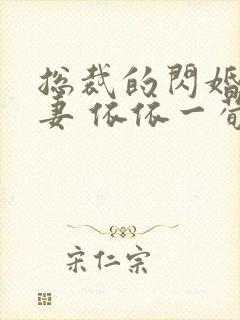 总裁的閃婚
妻 依依一萄
宋仁宗